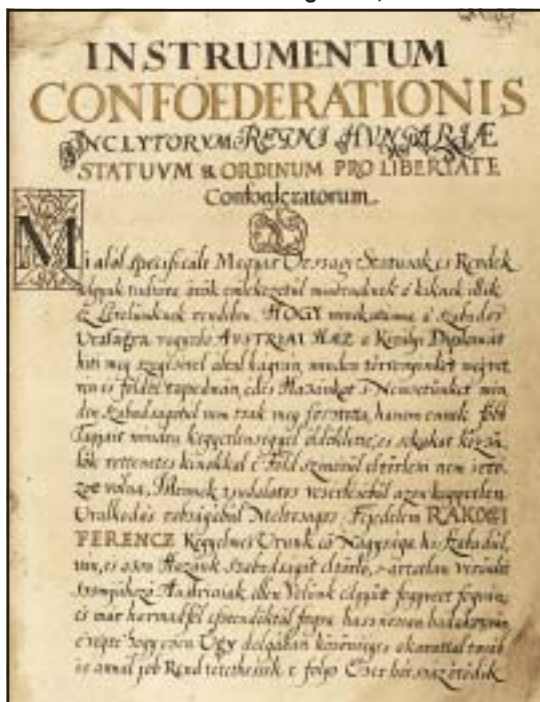 INSTRUMENTUM
CONFOEDERATIONIS
INCLYTORVM REGNI HVNGARIÆ
STATUVM & ORDINUM PRO LIBERTATE
Confoederatorum
Mi alól specificált Magyar Országi Statusok és Rendek
adgyuk tudtára örök emlékezetül mindeneknek a kiknek illik
ez Levelünknek rendiben. HOGY a szabados
AUSTRIAI HAZ a Királyi Diplomat
hiti meg szegésével által hágván, minden törvényinket meg vet
vén és földre tapodván, édes Hazánkat s Nemzetünket min
den szabadságabúl nem csak meg fosztotta, hanem ennek főbb
Tagjait minden kegyetlenséggel öldöklötte, és sokakat
rettenetes kinokkal e Föld szinérül eltörleni nem
volna, Istennek csudálatos vezérlésébűl azon kegyetlen
Uralkodás rabságábúl Méltóságos Fejedelem RAKOCZI
FERENCZ Kegyelmes Urunk eő Nagysága ki Szabadúl,
ván, és azon Hazánk Szabadságát eltörlő, s ártatlan vérünket
szomjúhozó Austriaiak ellen Velünk edgyütt fegyvert fogván,
és már harmadfél esztendőktűl fogva
hogy ezen ÜGY dolgában közönséges akarattal
és annál jobb Rend tétethessék e folyó Ezer hét száz ötödik